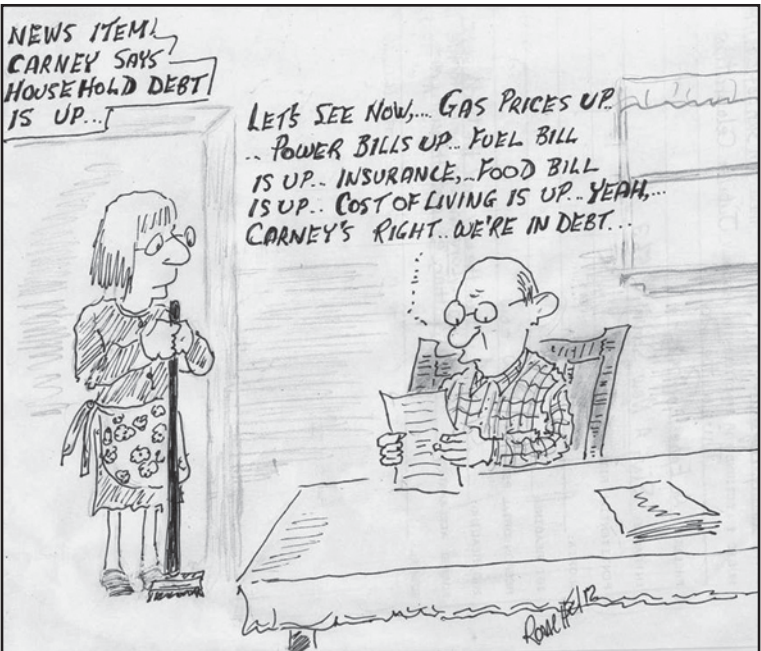 NEWS ITEM!
CARNEY SAYS
HOUSEHOLD DEBT
IS UP...
LET'S SEE NOW,... GAS PRICES UP..
.. POWER BILLS UP.. FUEL BILL
IS UP.. INSURANCE,..FOOD BILL
IS UP.. COST OF LIVING IS UP.. YEAH,...
CARNEY'S RIGHT.. WE'RE IN DEBT...